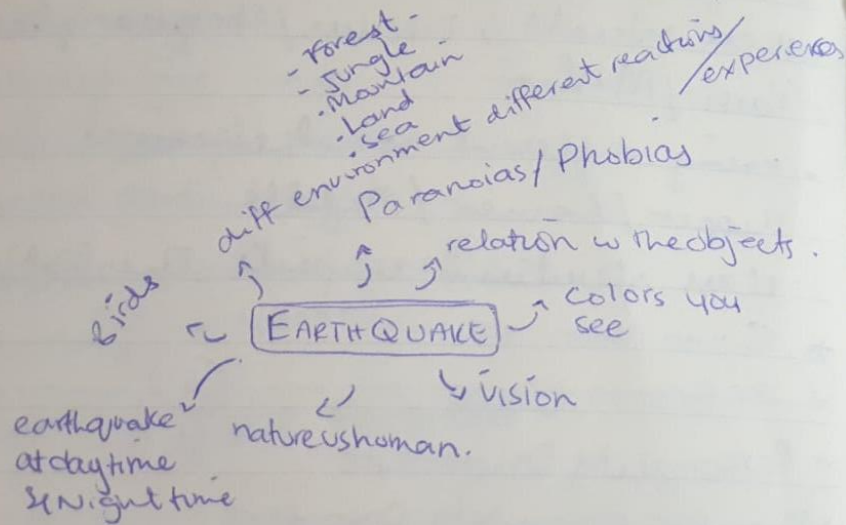 - Forest -
- Jungle
. Mountain
. Land
. sea
diff environment different reactions/
/experexes
Paranoias/Phobias
relation w the objects.
Birds
EARTHQUAKE
colors you
see
vision
earthquake
at day time
& Night time
nature vs human.